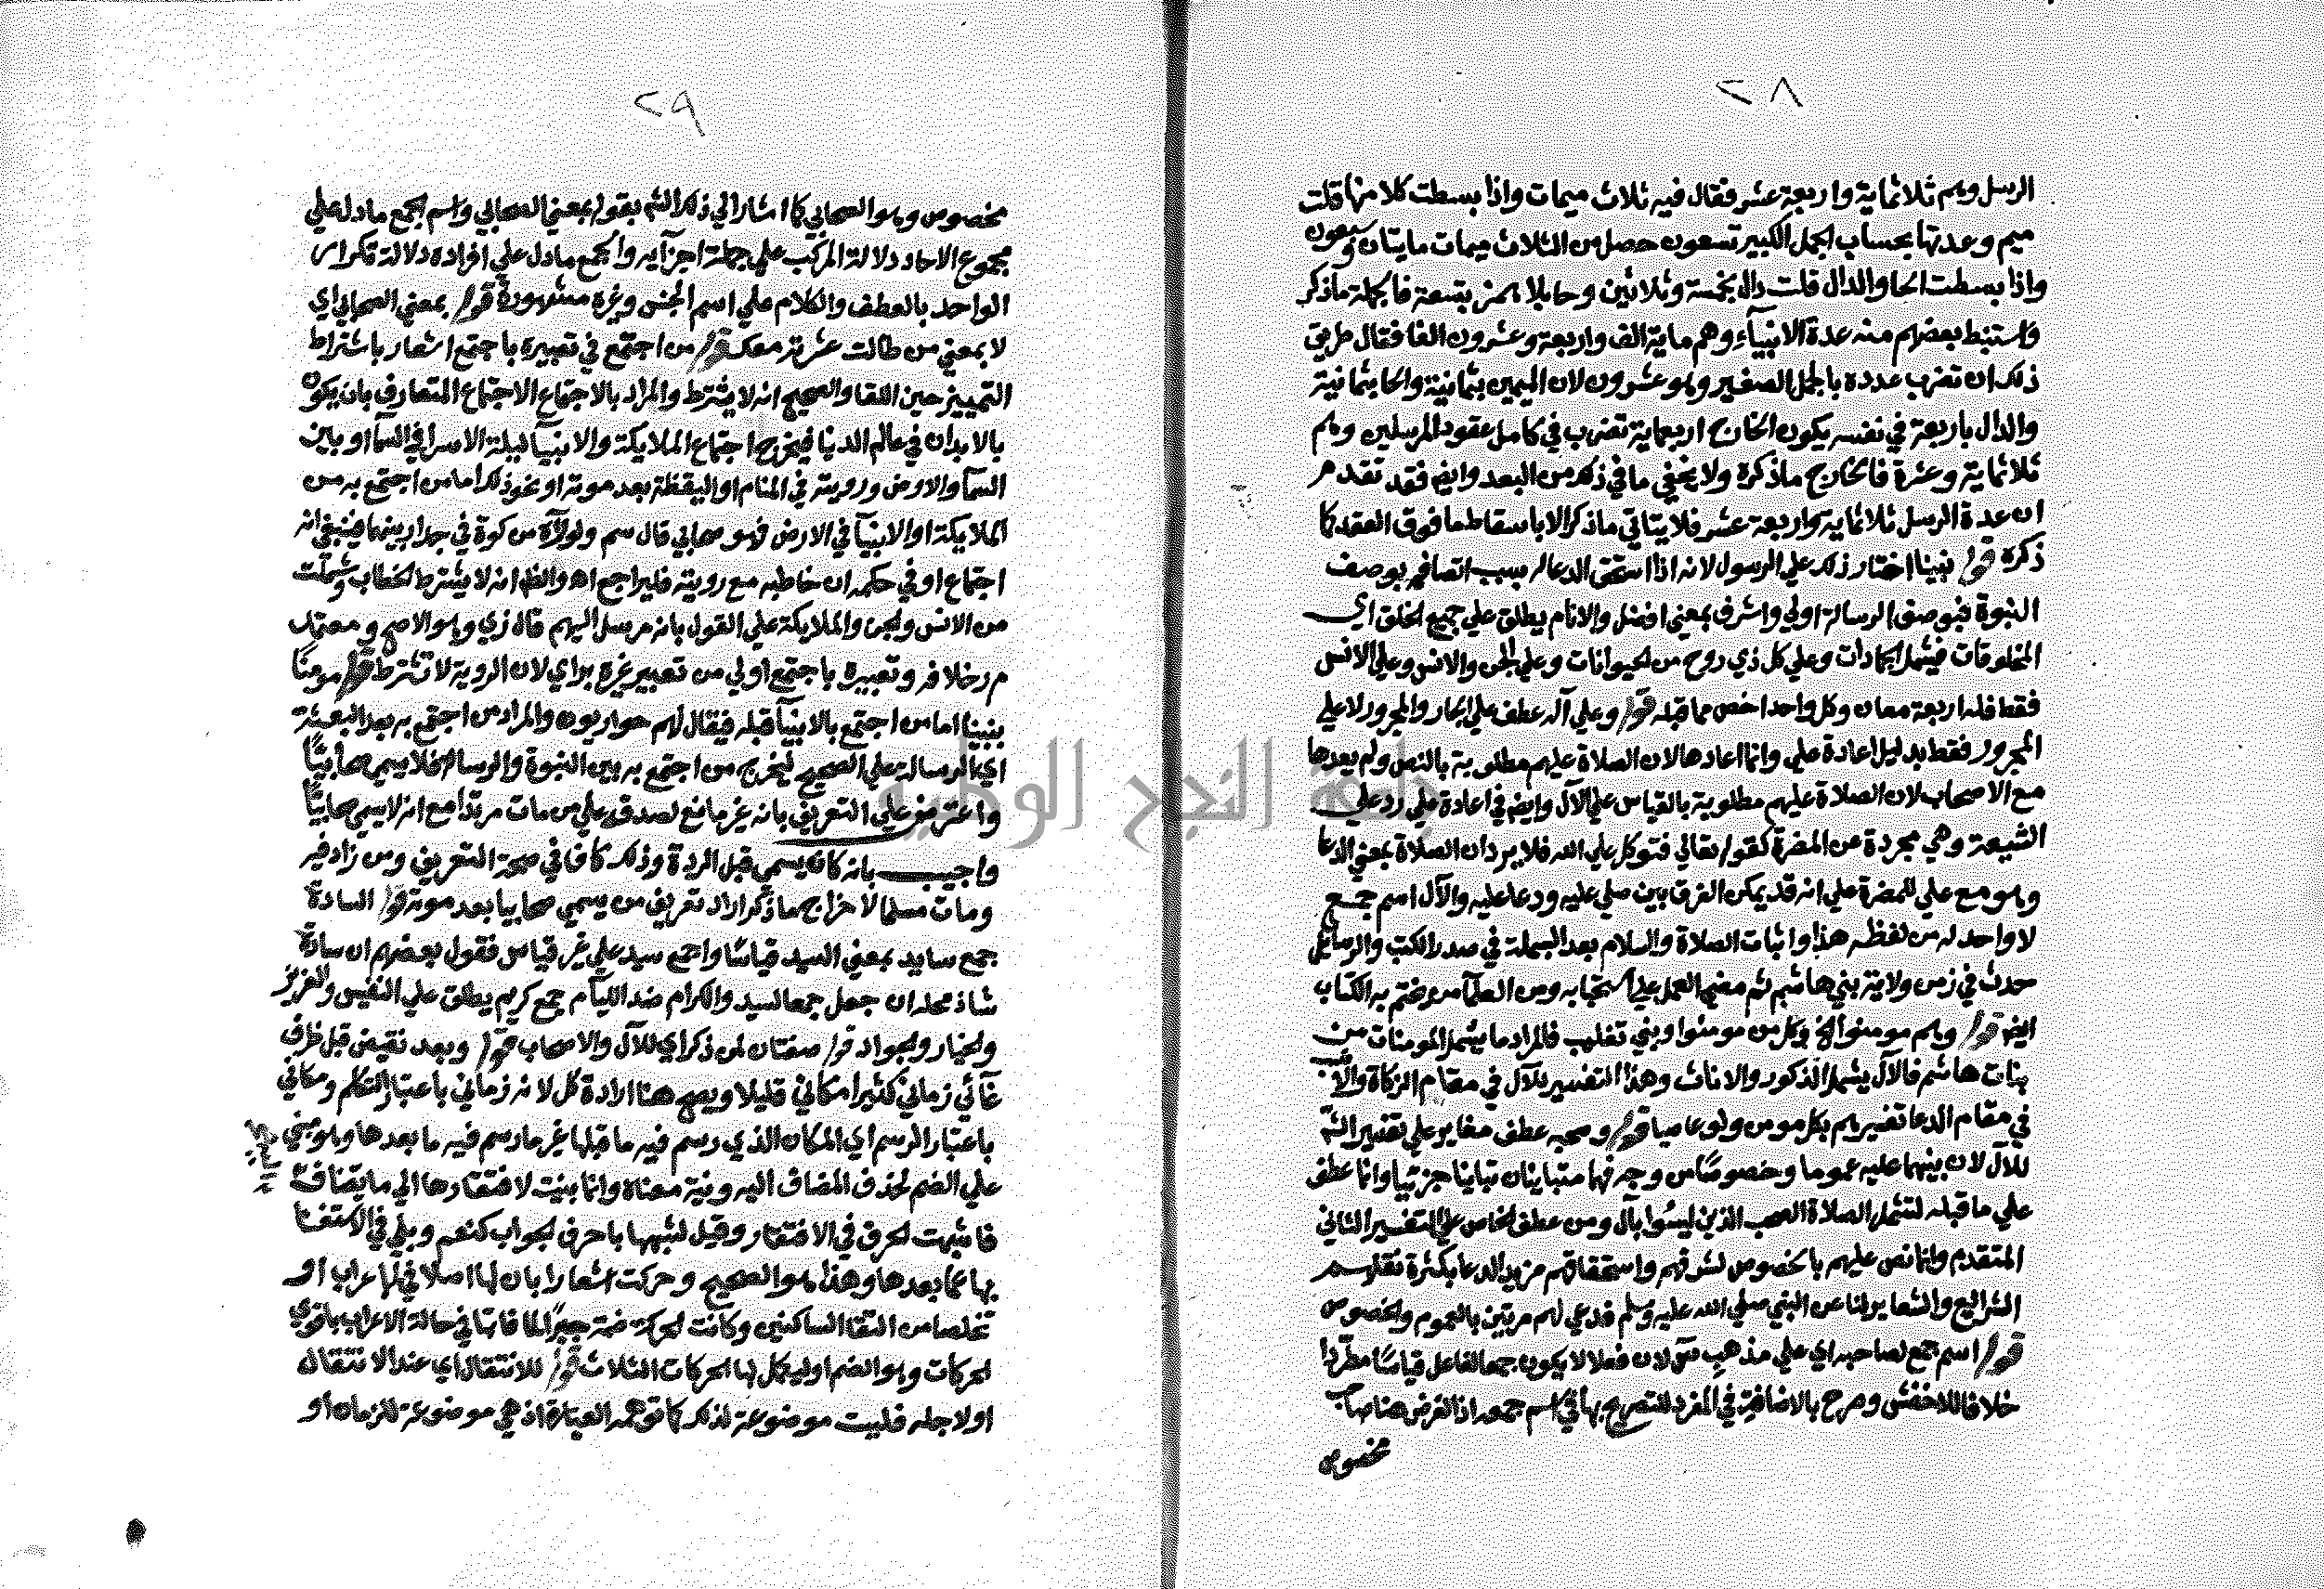 ٢٨
الرسل وهم ثلاثماية واربعة عشر فقال فيه ثلاث ميمات واذا بسطت كلا منها قلت
ميم وعدتها بحساب الجمل الكبير تسعون حصل من الثلاث ميمات مايتان وسبعون
واذا بسطت الحا والدال قلت دال بخمسة وثلاثين وحا بلا همز بتسعة فالجملة ما ذكر
واستنبط بعضهم منه عدة الانبياء وهم ماية الف واربعة وعشرون الفا فقال طريق
ذلك ان تضرب عدده بالجمل الصغير وهو عشرون لان الميمين بثمانية والحا بثمانية
والدال باربعة في نفسه يكون الخارج اربعماية تضرب في كامل عقود المرسلين وهم
ثلاثماية وعشرة فالخارج ما ذكره ولا يخفي ما في ذلك من البعد وايضا فقد تقدم
ان عدة الرسل ثلاثماية واربعة عشر فلا يتاتي ما ذكر الا باسقاط ما فوق العقد كما
ذكره قوله نبينا اختار ذلك علي الرسول لانه اذا استحق الدعا له بسبب اتصافه بوصف
النبوة فبوصف الرسالة اولي واشرف بمعني افضل والانام يطلق علي جميع الخلق اي
المخلوقات فيشمل الجمادات وعلي كل ذي روح من الحيوانات وعلي الجن والانس وعلي الانس
فقط فله اربعة معان وكل واحد اخص مما قبله قوله وعلي آله عطف علي الجار والمجرور لا علي
المجرور فقط بدليل اعادة علي وانما اعادها لان الصلاة عليهم مطلوبة بالنص ولم يعدها
مع الاصحاب لان الصلاة عليهم مطلوبة بالقياس علي الآل وايضا في اعادة علي رد علي
الشيعة وهي مجردة عن المضرة كقوله تعالي فتوكل علي الله فلا يرد ان الصلاة بمعني الدعا
وهو مع علي للمضرة علي انه قد يمكن الفرق بين صلي عليه ودعا عليه والآل اسم جمع
لا واحد له من لفظه هذا واثبات الصلاة والسلام بعد البسملة في صدر الكتب والرسايل
حدث في زمن ولاية بني هاشم ثم مضي العمل علي استحبابه ومن العلما من ختم به الكتاب
ايضا قوله وهم مومنوا الخ وكل من مومنوا وبني تغليب فالمراد ما يشمل المومنات من
بنات هاشم فالآل يشمل الذكور والاناث وهذا التفسير للآل في مقام الزكاة والانسب
في مقام الدعا تفسيرهم بكل مومن ولو عاصيا قوله وصحبه عطف مغاير علي تفسير الشم
للآل لان بينهما عليه عموما وخصوصا من وجه فهما متباينان تباينا جزئيا وانما عطف
علي ما قبله لتشمل الصلاة الصحب الذين ليسوا بآل ومن عطف الخاص علي التفسير الثاني
المتقدم وانما نص عليهم بالخصوص لشرفهم واستحقاقهم مزيد الدعا بكثرة نقلهم
الشرائع والشعاير لنا عن النبي صلي الله عليه وسلم فدعي لهم مرتين بالعموم والخصوص
قوله اسم جمع لصاحبه اي علي مذهب س لان فعلا لا يكون جمعا لفاعل قياسا مطردا
خلافا للاخفش وصرح بالاضافة في المفرد للتصريح بها في اسم جمعه اذ الغرض هنا صاحب
مخصوص
٢٩
مخصوص وهو الصحابي كما اشار الي ذلك الشم بقوله بمعني الصحابي واسم الجمع ما دل علي
مجموع الاحاد دلالة المركب علي جملة اجزآيه والجمع ما دل علي افراده دلالة تكرار
الواحد بالعطف والكلام علي اسم الجنس وغيره مشهورة قوله بمعني الصحابي اي
لا بمعني من طالت عشرته معك قوله من اجتمع في تعبيره باجتمع اشعار باشتراط
التمييز حين اللقا والصحيح انه لا يشترط والمراد بالاجتماع الاجتماع المتعارف بان يكون
بالابدان في عالم الدنيا فيخرج اجتماع الملايكة والانبيآ ليلة الاسرا في السما او بين
السما والارض ورويته في المنام او اليقظة بعد موته او نحو ذلك اما من اجتمع به من
الملايكة او الانبيآ في الارض فهو صحابي قال سم ولو رآه من كوة في جدار بينهما فينبغي انه
اجتماع او في حكمه ان خاطبه مع رويته فليراجع اه والظ انه لا يشترط الخطاب وشملت
من الانس والجن والملايكة علي القول بانه مرسل اليهم قال زي وهو الاصح ومعتمد
م ر خلافه وتعبيره باجتمع اولي من تعبير غيره براي لان الروية لا تشترط قوله مومنا
بنبينا اما من اجتمع بالانبيآ قبله فيقال لهم حواريون والمراد من اجتمع به بعد البعثة
اي الرسالة علي الصحيح ليخرج من اجتمع به بين النبوة والرسالة فلا يسمي صحابيا
واعترض علي التعريف بانه غير مانع لصدقه علي من مات مرتدا مع انه لا يسمي صحابيا
واجيب بانه كان يسمي قبل الردة وذلك كاف في صحة التعريف ومن زاد فيه
ومات مسلما لاخراج ما ذكر اراد تعريف من يسمي صحابيا بعد موته قوله السادة
جمع سايد بمعني السيد قياسا واجمع سيد علي غير قياس فقول بعضهم ان سادة
شاذ محله ان جعل جمعا لسيد والكرام ضد الليآم جمع كريم يطلق علي النفيس والعزيز
والخيار والجواد قوله صفتان لمن ذكر اي للآل والاصحاب قوله وبعد نقيض قبل ظرف
غآئي زماني كثيرا مكاني قليلا ويصح هنا ارادة كل لانه زماني باعتبار التكلم ومكاني
باعتبار الرسم اي المكان الذي رسم فيه ما قبلها غير ما رسم فيه ما بعدها وهو مبني
علي الضم لحذف المضاف اليه ونية معناه وانما بنيت لافتقارها الي ما يضاف
فاشبهت الحرف في الافتقار وقيل لشبهها باحرف الجواب كنعم وبلي في الاكتفا
بها عما بعدها وهذا هو الصحيح وحركت اشعارا بان لها اصلا في الاعراب او
تخلصا من التقا الساكنين وكانت الحركة ضمة جبرا لما فاتها في حالة الاعراب باقوي
الحركات وهو الضم او ليكمل لها الحركات الثلاث قوله للانتقال اي عند الانتقال
او لاجله فليست موضوعة لذلك كما توهمه العبارة اذ هي موضوعة للزمان او
جامعة النجاح الوطنية